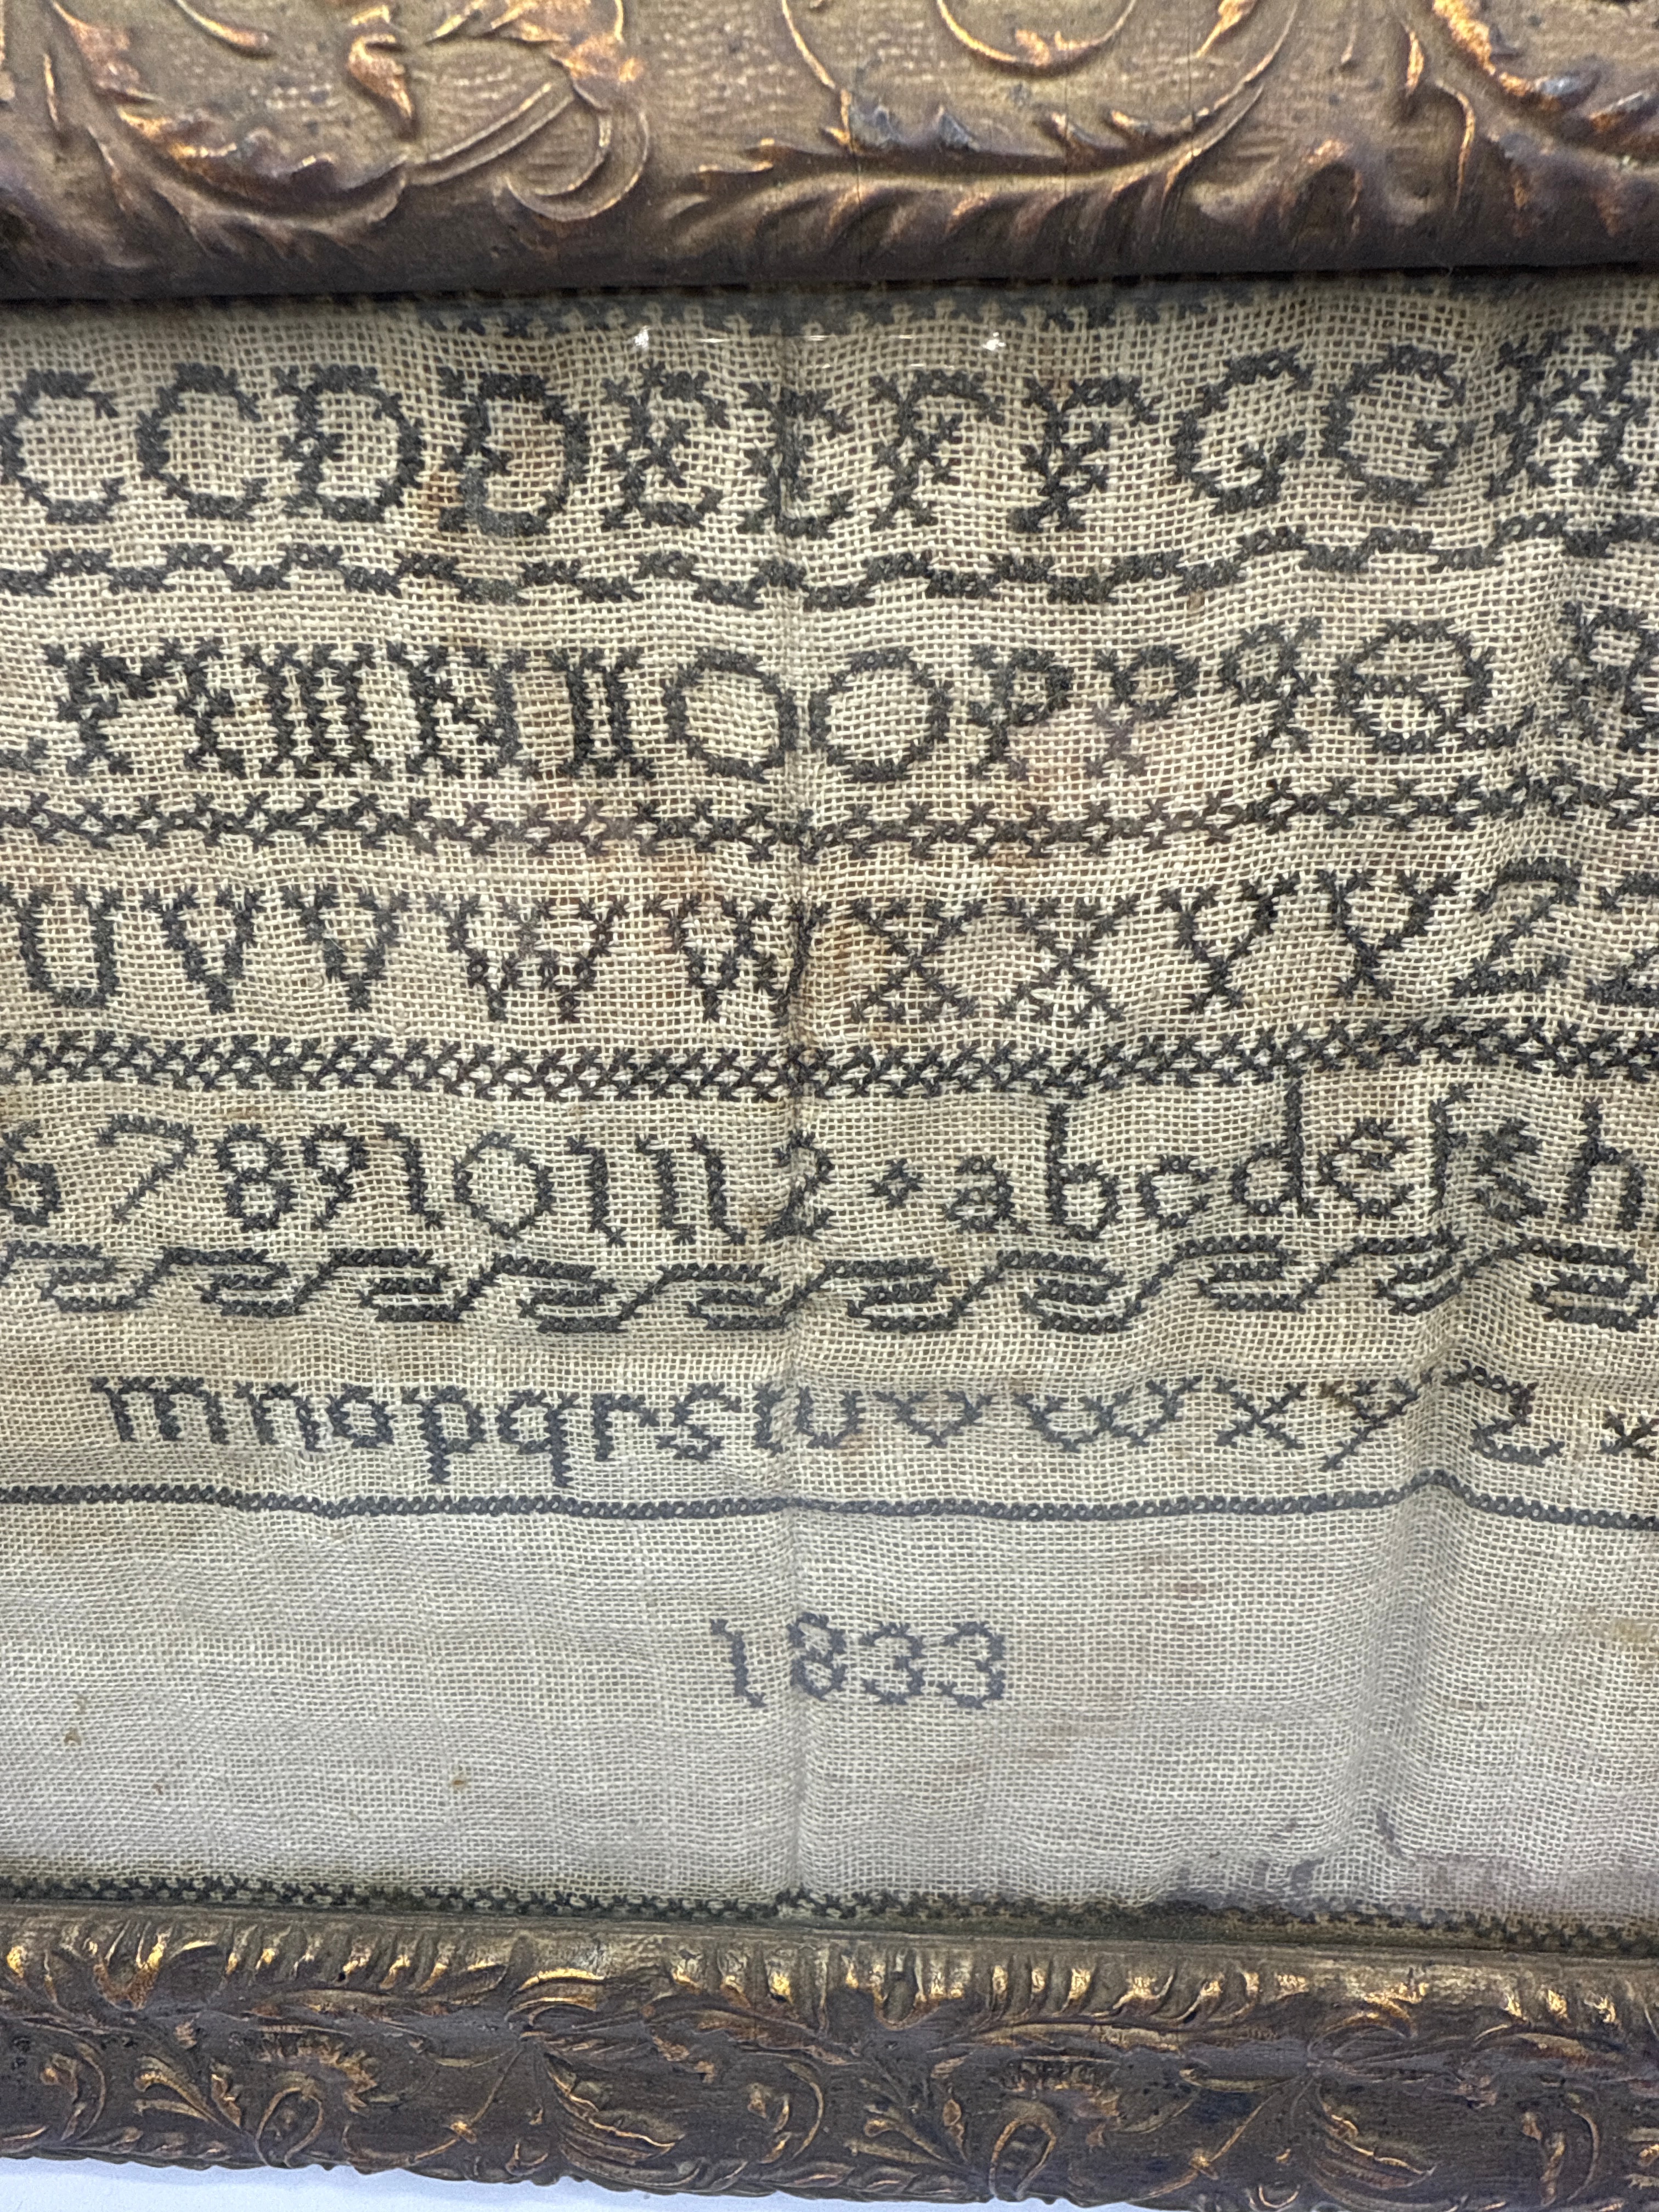 CCDDEEFFGGH
MMNNOOPPqQR
UVVWWXXYYZZ
6789101112·abcdefgh
mnopqrstuvwxyz
1833